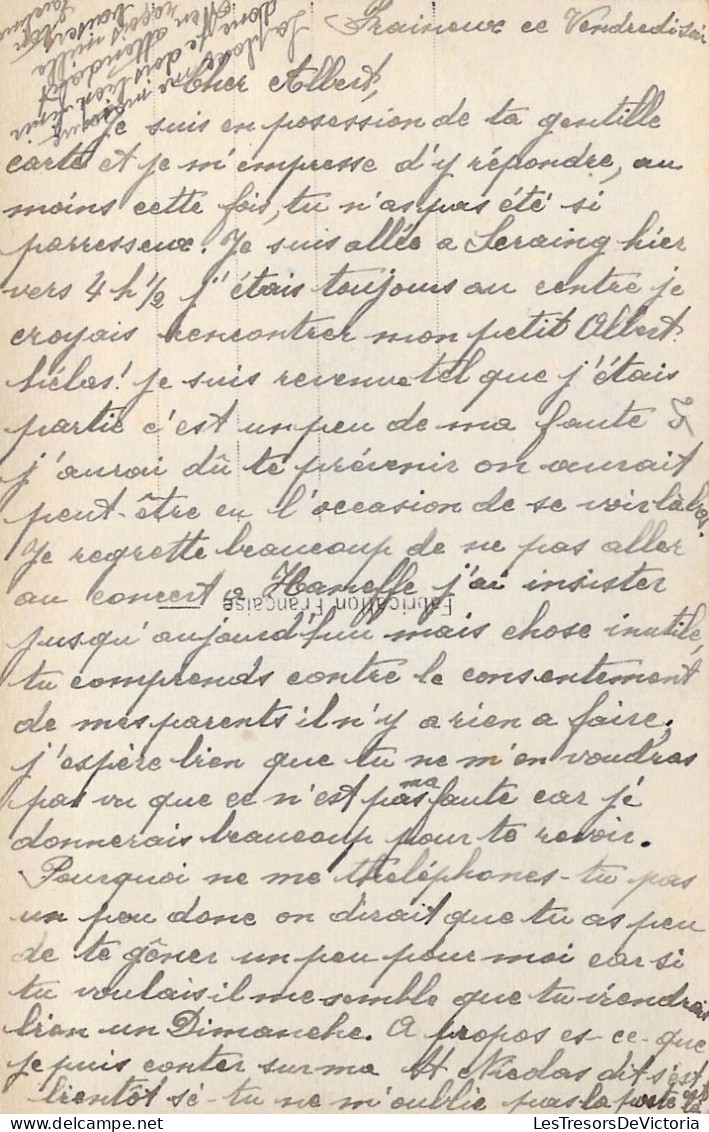 Fraineux ce Vendredi soir
Cher Albert,
Je suis en posession de ta gentille
carte et je m'empresse d'y répondre, au
moins cette fois, tu n'as pas été si
parresseux. Je suis allée a Seraing hier
vers 4 h 1/2 j'étais toujours au centre je
croyais rencontrer mon petit Albert.
hélas! je suis revenue tel que j'étais
partie c'est un peu de ma faute
j'aurai dû te prévenir on aurait
peut-être eu l'occasion de se voir là bas.
Je regrette beaucoup de ne pas aller
au concert a Haneffe j'ai insister
Fabrication Française
jusqu'aujourd'hui mais chose inutile,
tu comprends contre le consentement
de mes parents il n'y a rien a faire,
j'espère bien que tu ne m'en voudras
pas vu que ce n'est pas ma faute car je
donnerais beaucoup pour te revoir.
Pourquoi ne me théléphones-tu pas
un peu donc on dirait que tu as peu
de te gêner un peu pour moi car si
tu voulais il me semble que tu viendrais
bien un Dimanche. A propos es-ce-que
je puis conter sur ma St Nicolas dit s'est
bientôt sé-tu ne m'oublie pas la poste
la place me manque
donc je dois bien finir
En attendant
reçois mille
baisers